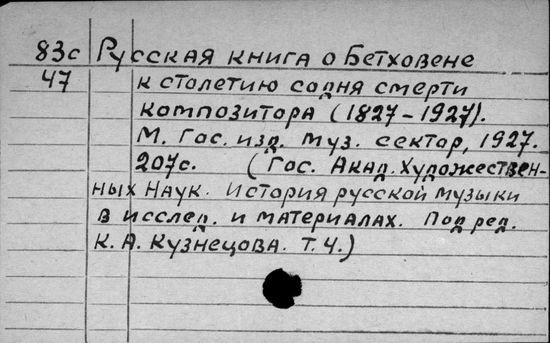 83с Русская книга о Бетховене
47 к столетию со дня смерти
композитора (1827-1927).
М. Гос. изд. Муз. сектор, 1927.
207с. (Гос. Акад. Художествен-
ных Наук. История русской музыки
в исслед. и материалах. Под ред.
К. А. Кузнецова. Т. 4.)